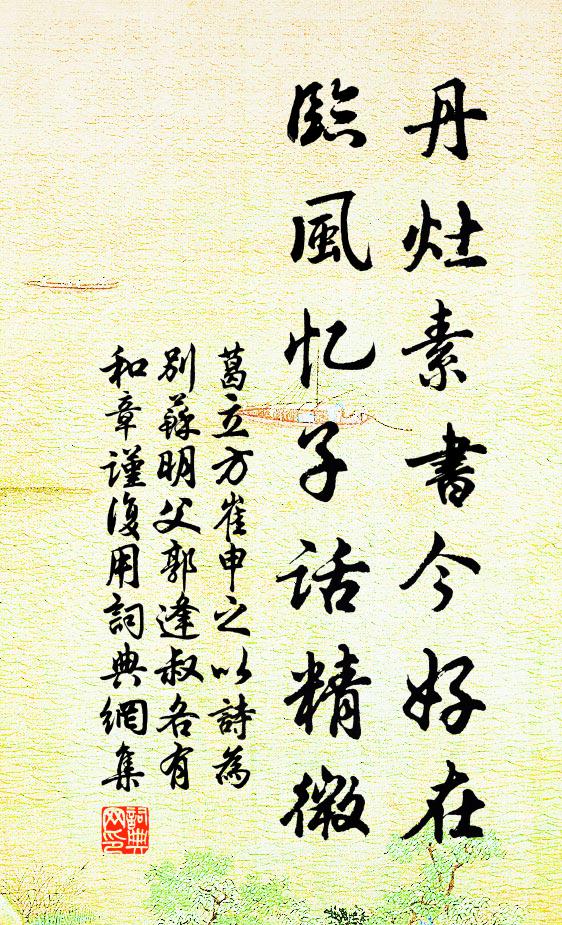 丹灶素書今好在
臨風忆子话精微
葛立方崔申之以詩為
別蘇明父郭逢叔各有
和章謹復用詞典網集
詞典网印